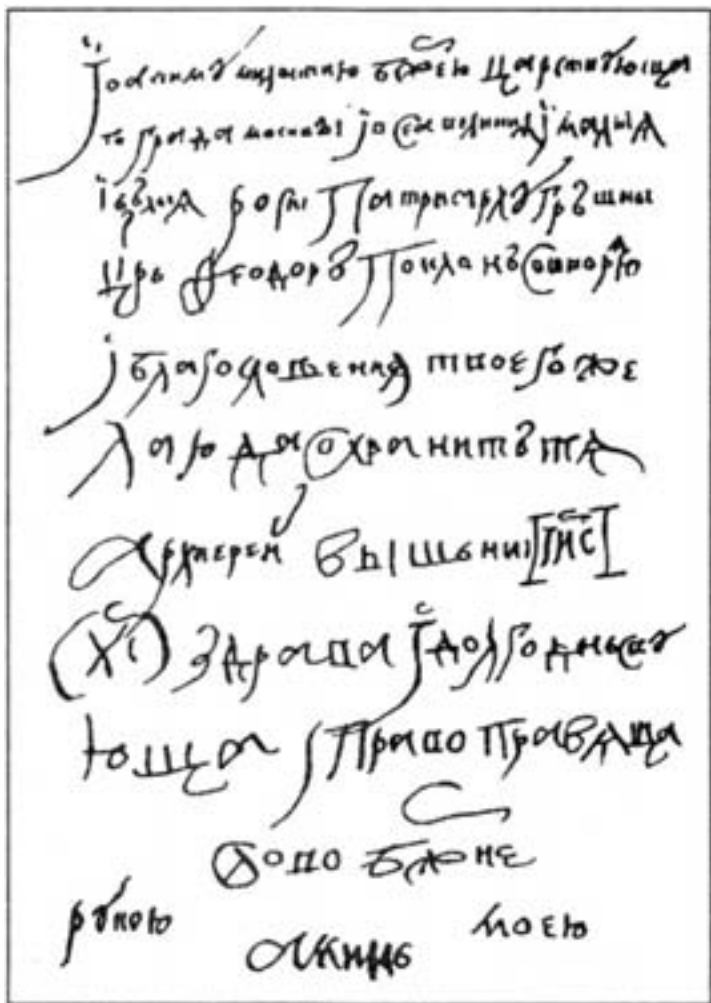 Їоакиму милостию бжею царствующа
го града москвы ї всеа великия ї малыя
ї белыя росиї патриарху грѣшны
црь Ѳеодоръ поклонъ сотворяю
ї благословения твоего же
лаю да сохранитъ тя
архиерей вышьниї [IИС]
(ХС) здрава ї долгоденьству
юща ї право правяща
слово бжие
рукою моею
аминь